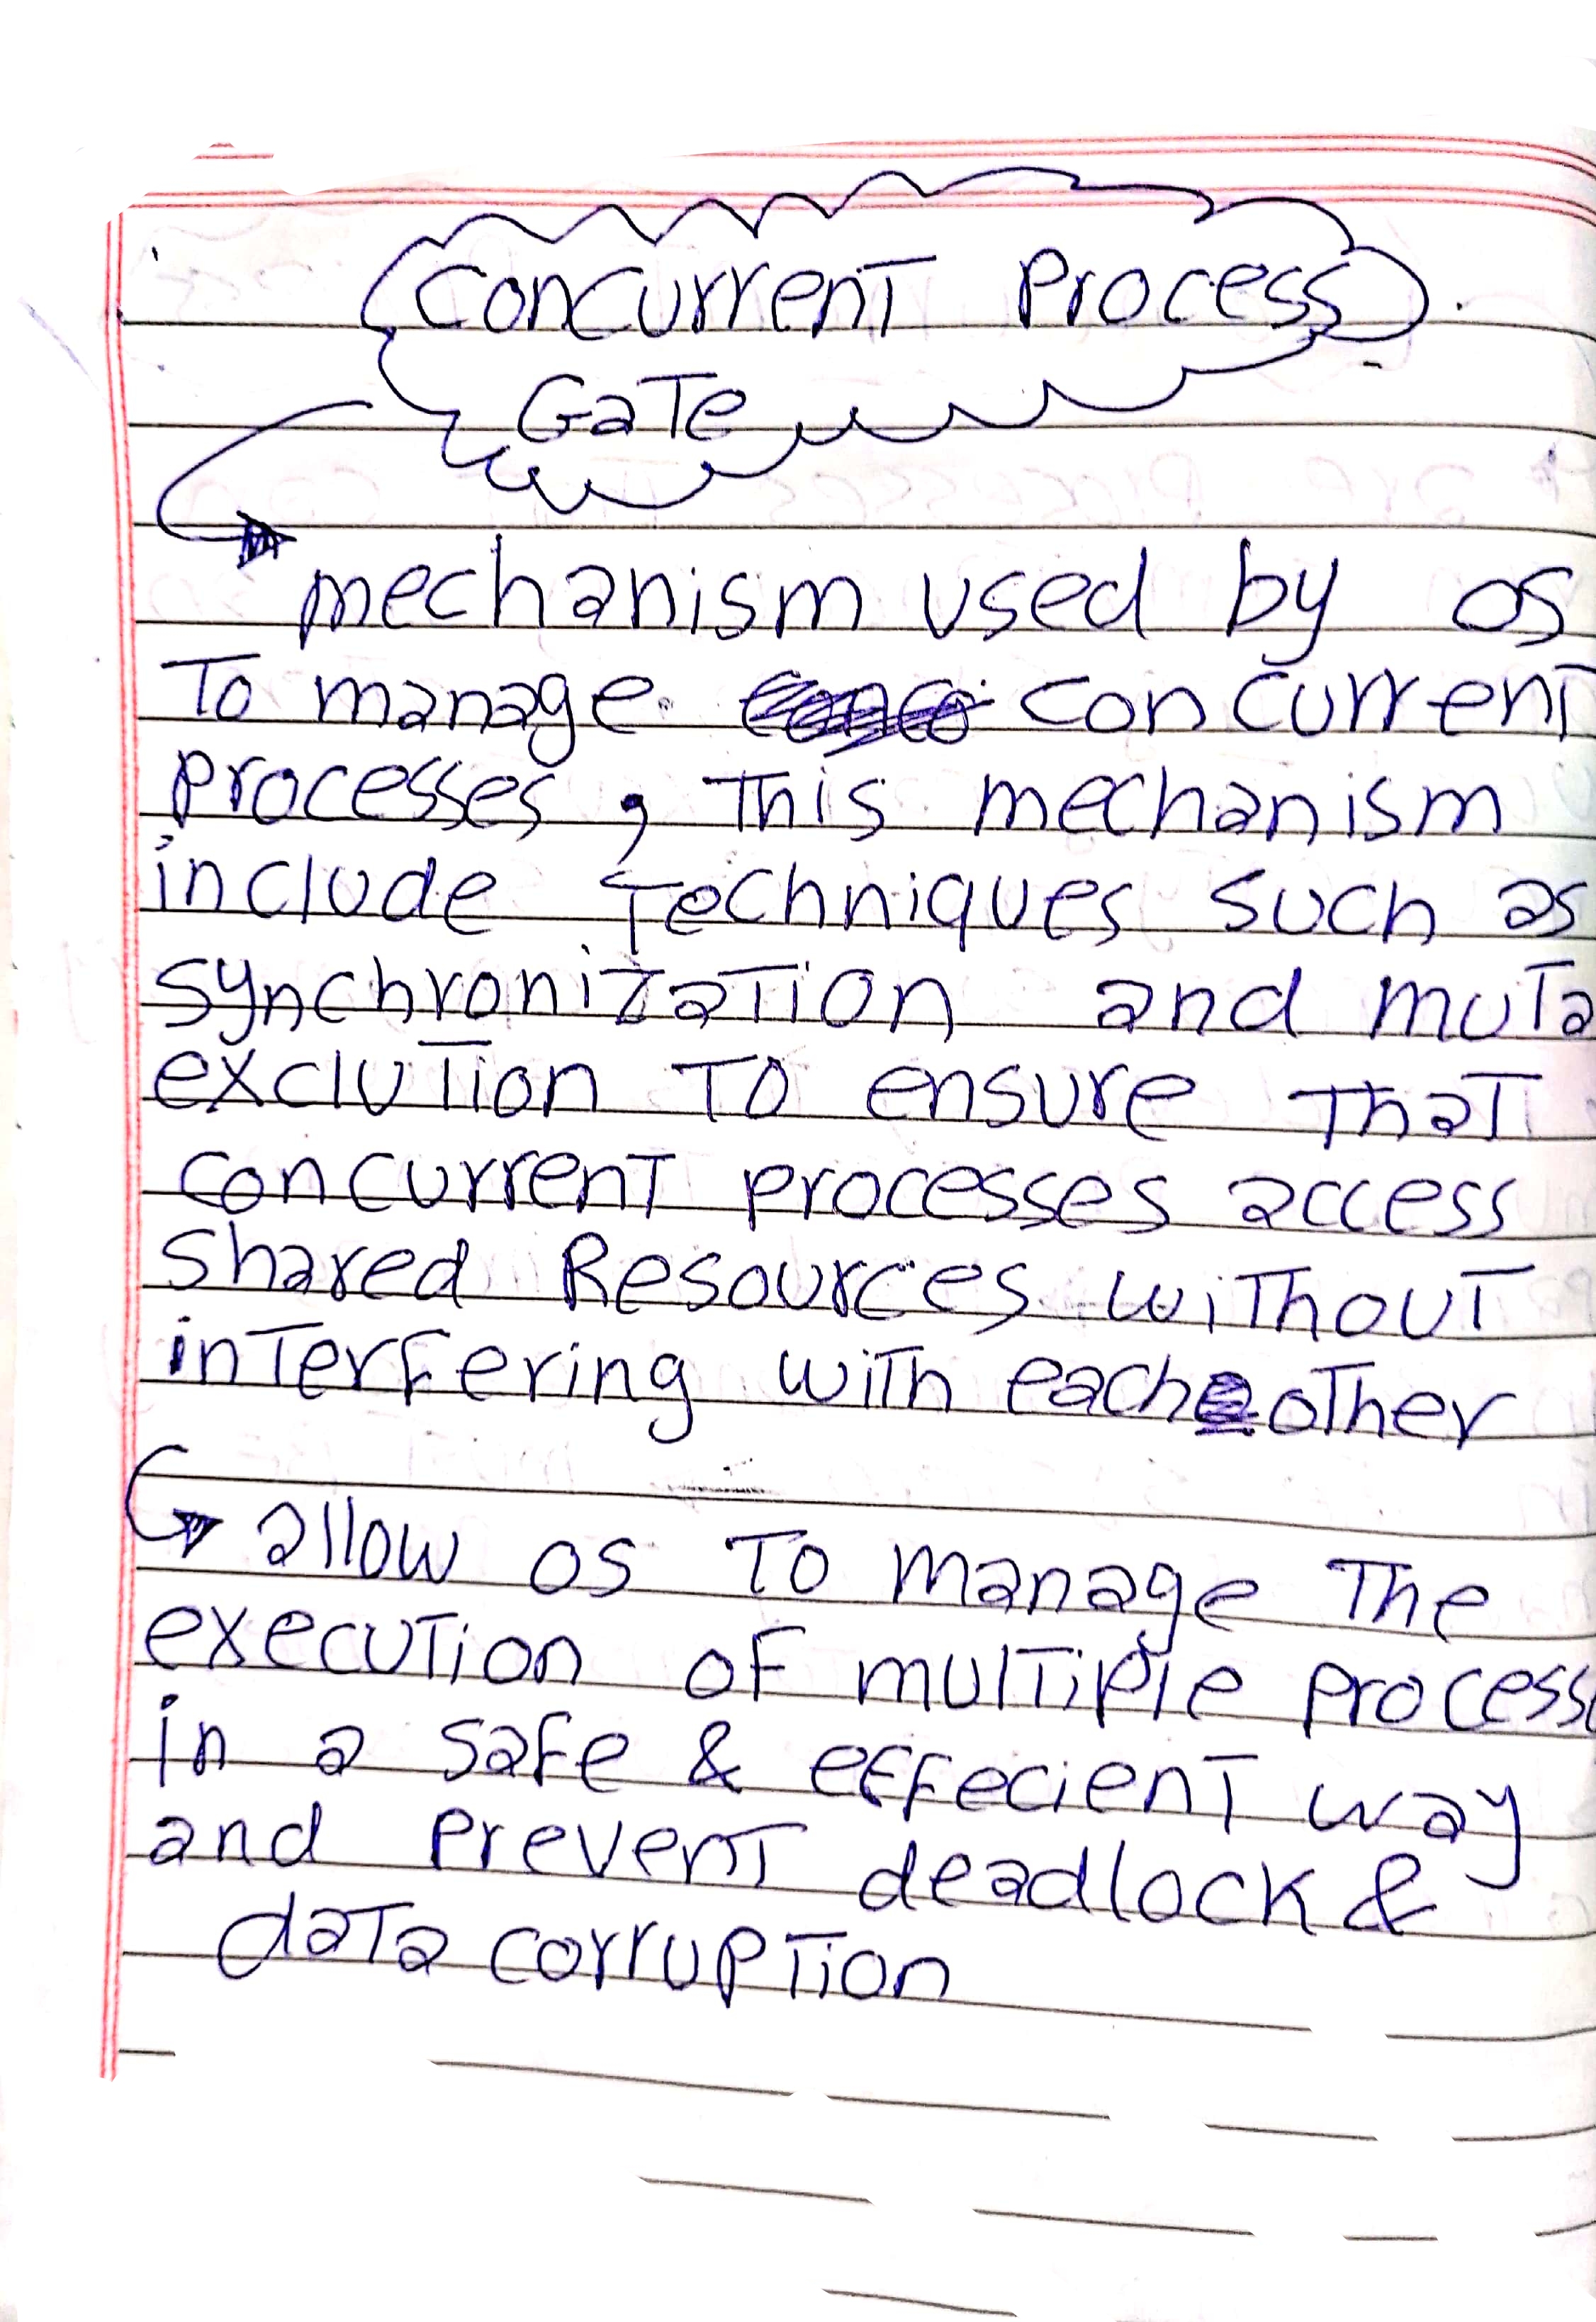 Concurrent Process
Gate
mechanism used by os
To manage concurrent
processes, This mechanism
include Techniques such as
synchronization and muta
exclution To ensure that
concurrent processes access
shared Resources without
interfering with each other
allow os To manage The
execution of multiple process
in a safe & effecient way
and prevent deadlock &
data corruption